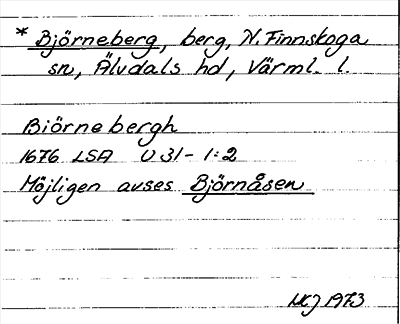 * Björneberg, berg, N. Finnskoga
sn, Älvdals hd, Värml. l.
Biörnebergh
1676 LSA U 31-1:2
Möjligen avses Björnåsen
1973